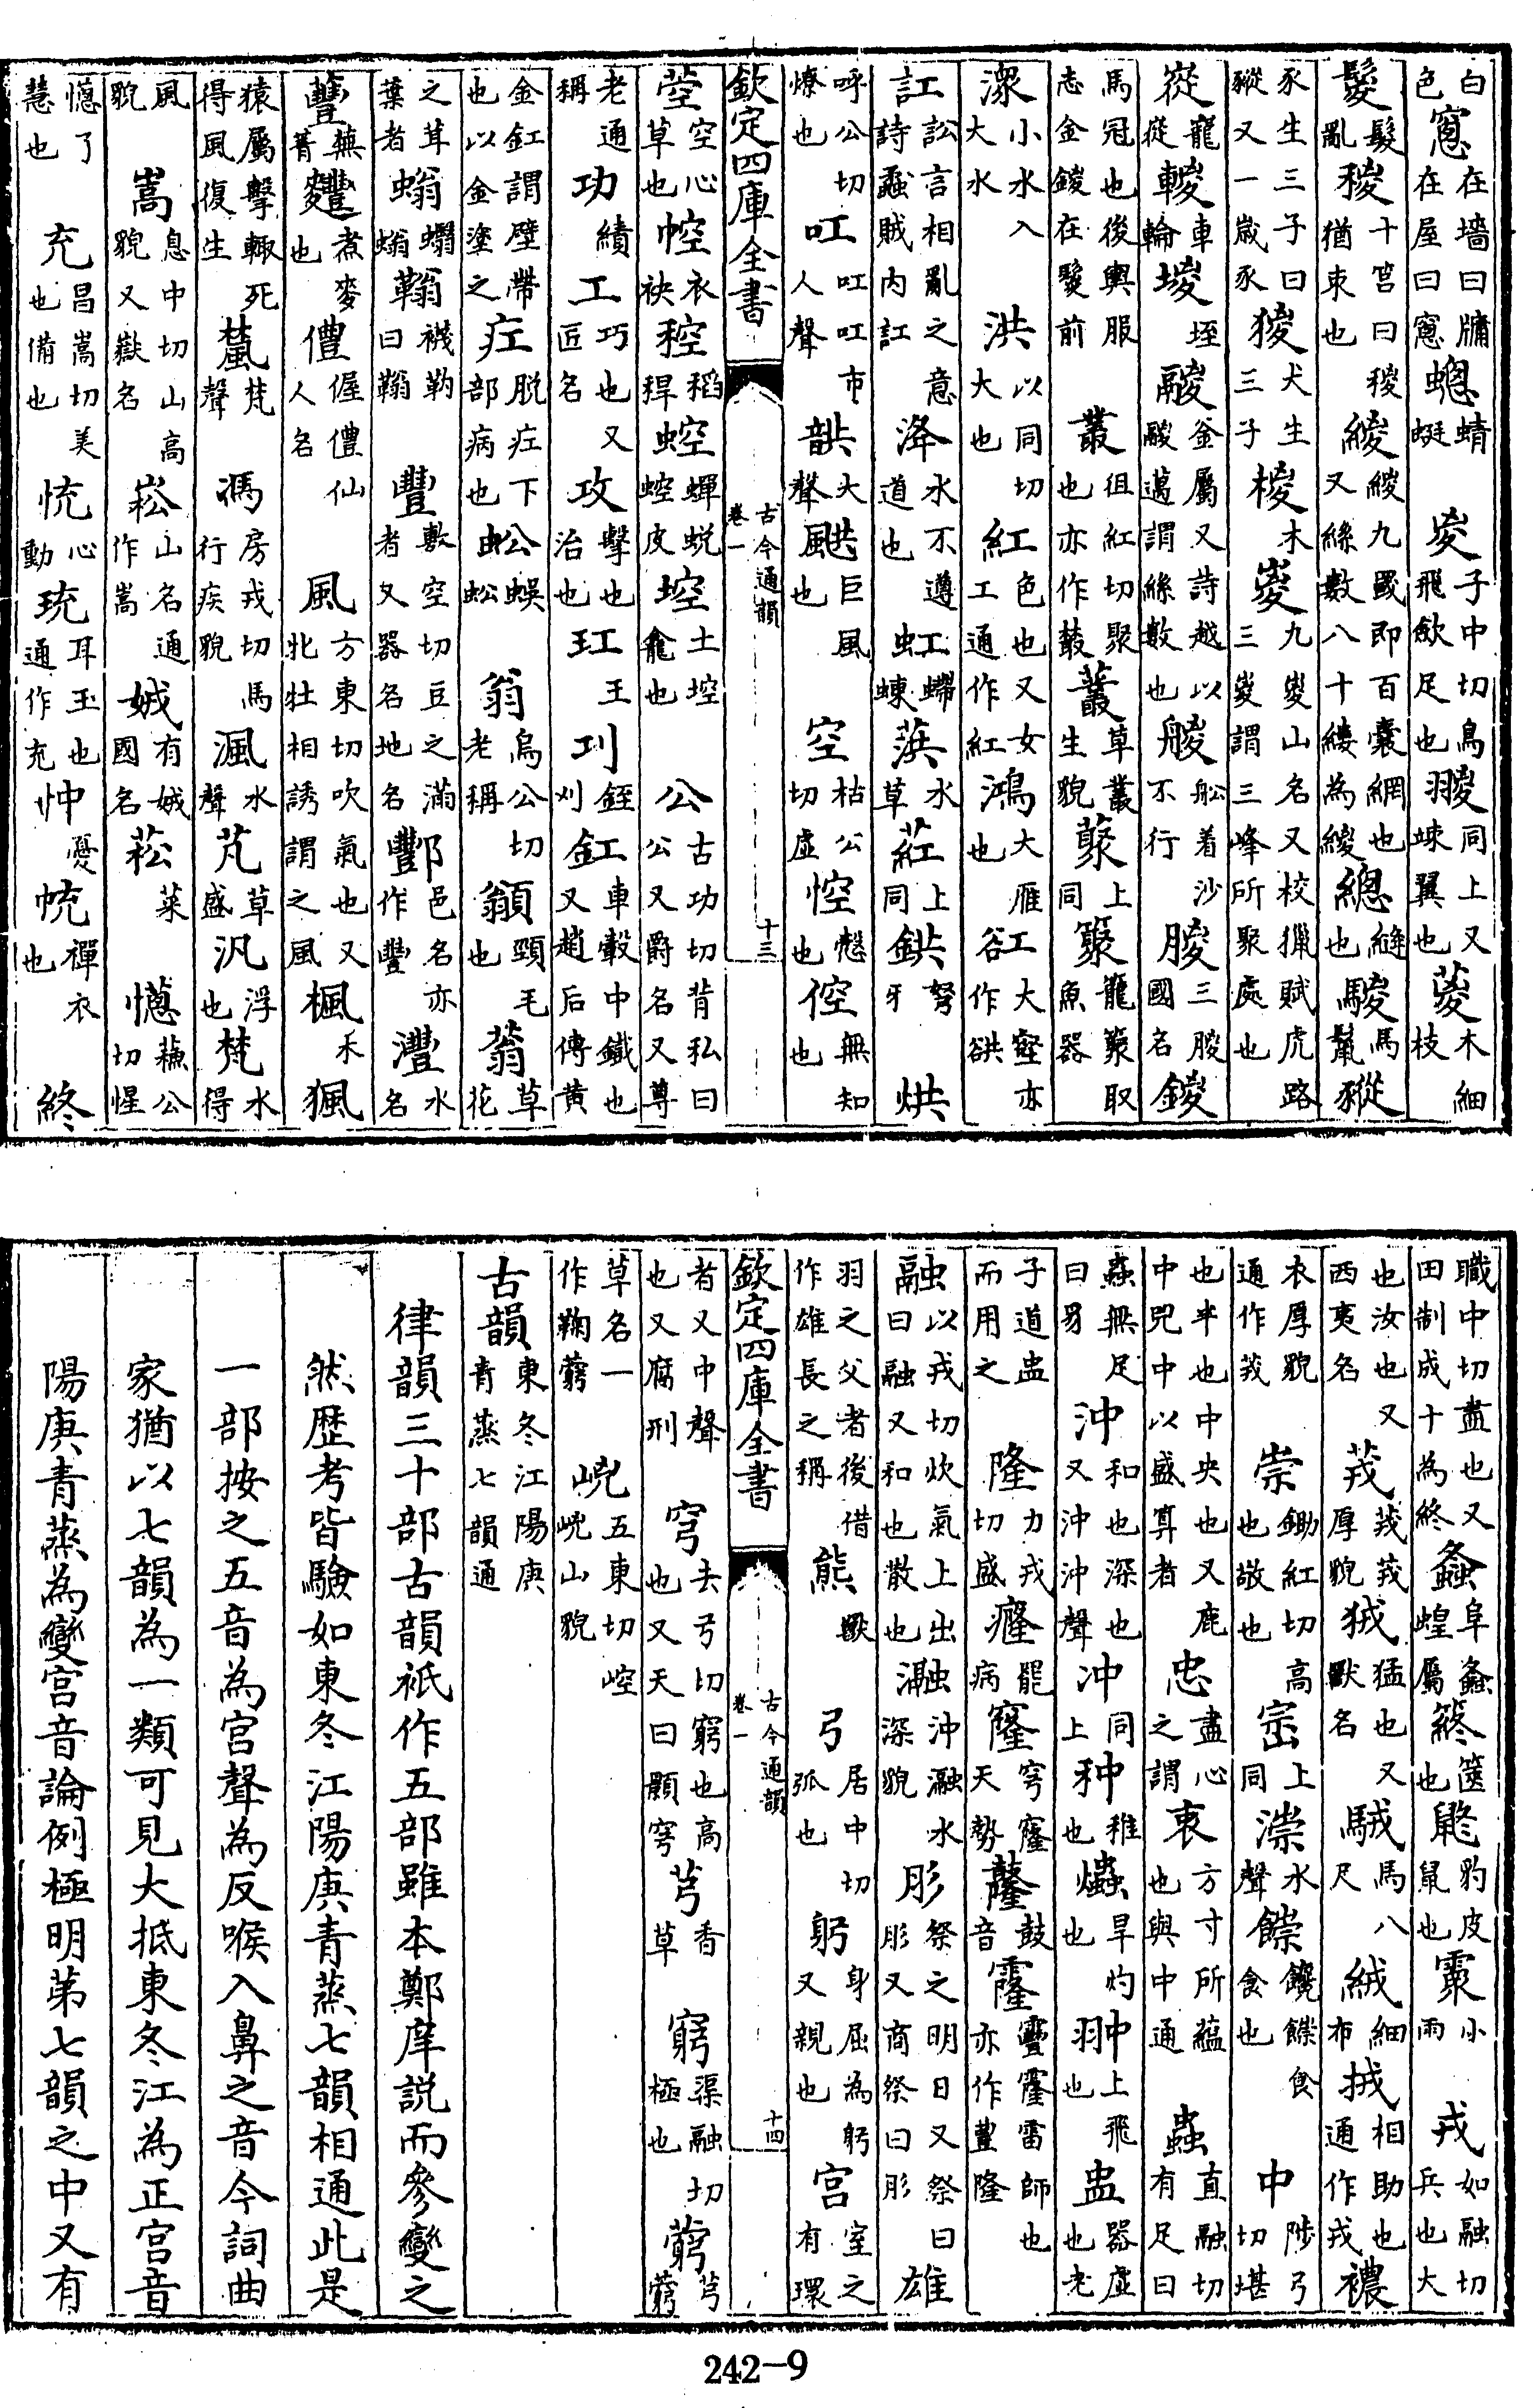 白色窻在墻曰牖在屋曰窻蟌蜻蜓㚇子中切鳥飛斂足也翪同上又竦翼也葼木細枝
鬉髮亂稯十筥曰稯猶束也緵緵九罭即百囊網也又絲數八十縷為緵緫縫也騣馬鬣豵
豕生三子曰豵又一歲豕猣犬生三子椶木嵏九嵏山名又校獵賦虎路三嵏謂三峰所聚處也
嵸巃嵸𨍉車輪堫垤鬷釜屬又詩越以鬷邁謂絲數也艐船着沙不行朡三朡國名鍐
馬冠也後輿服志金鍐在髦前叢徂紅切聚也亦作䕺藂草叢生貌䕺上同篹籠篹取魚器
潀小水入大水洪以同切大也紅色也又女工通作紅鴻大雁也谼大壑亦作谾
訌訟言相亂之意詩蟊賊內訌洚水不遵道也虹螮蝀葓水草葒上同鉷弩牙烘
呼公切燎也吅吅吅市人聲䪦大聲䫹巨風也空枯公切虛悾慤也倥無知也
欽定四庫全書 卷一 古今通韻 十三
䇨空心草也椌衣袂稑稻稈蛵蟬蛻蛵皮埪土埪龕也公古功切背私曰公又爵名又尊
老通稱功績工巧也又匠名攻擊也治也玒玉刂銍刈釭車轂中鐵也又趙后傳黃
金釭謂壁帶也以金塗之疘脫疘下部病也蚣蜈蚣翁烏公切老稱䫺頸毛也蓊草花
之茸葉者螉蠮螉䩺襪勒曰䩺豐敷空切豆之滿者又器名地名酆邑名亦作豐灃水名
蘴蕪菁麷煮麥也偑偓偑仙人名風方東切吹氣也又牝牡相誘謂之風楓木猦
猿屬擊輒死得風復生檒梵聲馮房戎切馬行疾貌渢水聲芃草盛汎浮也梵水得
風貌嵩息中切山高貌又嶽名崧山名通作嵩娀有娀國名菘菜憽蘓公切惺終
憽了慧也充昌嵩切美也備也㤝心動珫耳玉也通作充忡憂𢃭襌衣也
職中切盡也又田制成十為終螽阜螽蝗屬𥷤篋也鼨豹皮鼠也霥小雨戎如融切兵也大
也汝也又西夷名茙茙茙厚貌狨猛也又獸名駥馬八尺絨細布㧡相助也通作戎襛
衣厚貌通作茙崇鋤紅切高也敬也崈上同漴水聲饓饞饓貪食也中陟弓切堪
也半也中央也又鹿中兕中以盛算者忠盡心之謂衷方寸所蘊也與中通蟲直融切有足曰
蟲無足曰豸沖和也深也又沖沖聲沖同上种稚也爞旱灼也翀上飛也盅器虛也老
子道盅而用之隆力戎切盛癃罷病窿穹窿天勢鼕鼓音霳靊霳雷師也亦作豐隆
融以戎切炊氣上出曰融又和也散也瀜沖瀜水深貌肜祭之明日又祭曰肜又商祭曰肜雄
羽之父者後借作雄長之稱熊獸弓居中切弧也躬身屈為躬又親也宮室之有環
欽定四庫全書 卷一 古今通韻 十四
者又中聲也又腐刑穹去弓切窮也高也又天曰顯穹芎香草窮渠融切極也藭芎藭
草名一作鞠藭㟅五東切崆㟅山貌
古韻東冬江陽庚青蒸七韻通
律韻三十部古韻祇作五部雖本鄭庠說而參變之
然歷考皆驗如東冬江陽庚青蒸七韻相通此是
一部按之五音為宮聲為反喉入鼻之音今詞曲
家猶以七韻為一類可見大抵東冬江為正宮音
陽庚青蒸為變宮音論例極明第七韻之中又有
242-9